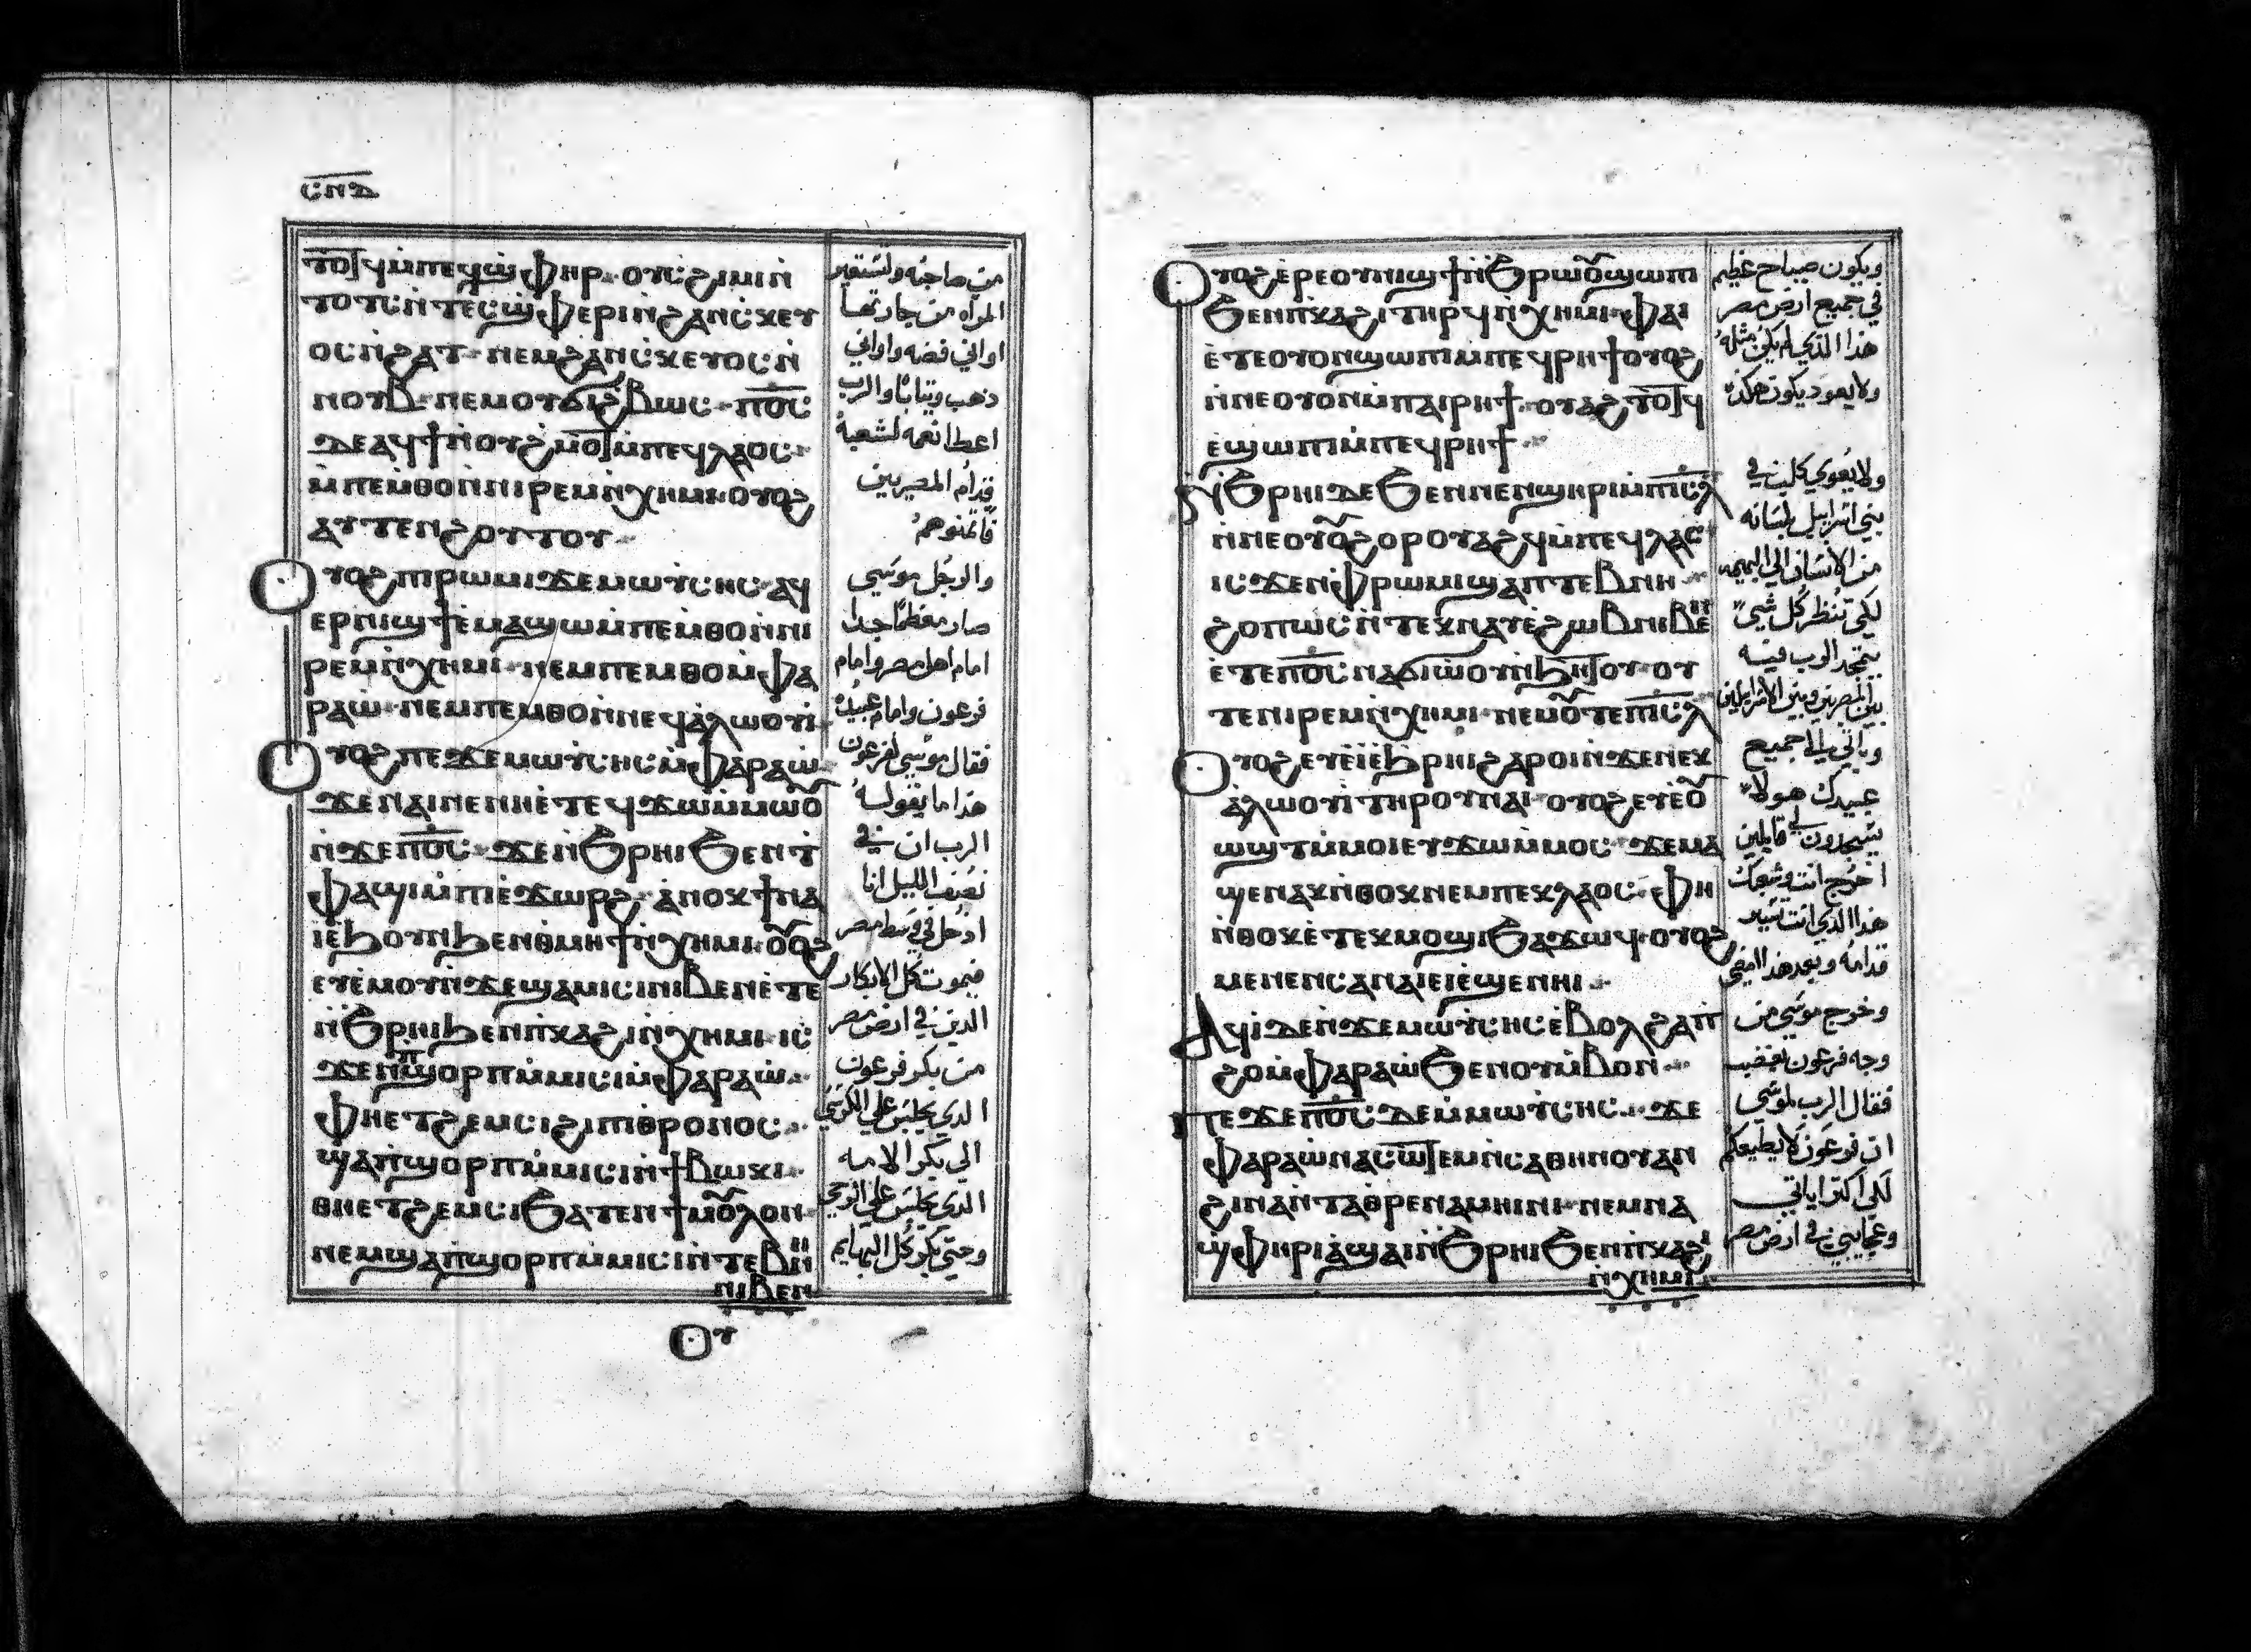 ⲥⲛⲇ
ⲧⲟⲧϥ ⲙ̀ⲡⲉϥϣ̀ⲫⲏⲣ· ⲟⲩⲥϩⲓⲙⲓ ⲛ̀
ⲧⲟⲧⲥ ⲛ̀ⲧⲉⲥϣ̀ⲫⲉⲣⲓ ⲛ̀ϩⲁⲛⲥⲕⲉⲩ
ⲟⲥ ⲛ̀ϩⲁⲧ· ⲛⲉⲙ ϩⲁⲛⲥⲕⲉⲩⲟⲥ ⲛ̀
ⲛⲟⲩⲃ· ⲛⲉⲙ ⲟⲩϭⲓϩⲃⲱⲥ· ⲡ̅ⲟ̅ⲥ̅
ⲇⲉ ⲁϥϯ ⲛ̀ⲟⲩϩⲙⲟⲧ ⲙ̀ⲡⲉϥⲗⲁⲟⲥ·
ⲙ̀ⲡⲉⲙⲑⲟ ⲛ̀ⲛⲓⲣⲉⲙⲛ̀ⲭⲏⲙⲓ· ⲟⲩⲟϩ
ⲁⲩⲧⲉⲛϩⲟⲩⲧⲟⲩ·
ⲟⲩⲟϩ ⲡⲓⲣⲱⲙⲓ ϫⲉ ⲙⲱⲩⲥⲏⲥ ⲁϥ
ⲉⲣⲛⲓϣϯ ⲉ̀ⲙⲁϣⲱ ⲙ̀ⲡⲉⲙⲑⲟ ⲛ̀ⲛⲓ
ⲣⲉⲙⲛ̀ⲭⲏⲙⲓ· ⲛⲉⲙ ⲡⲉⲙⲑⲟ ⲙ̀ⲫⲁ
ⲣⲁⲱ̀· ⲛⲉⲙ ⲡⲉⲙⲑⲟ ⲛ̀ⲛⲉϥⲁ̀ⲗⲱⲟⲩⲓ̀·
ⲟⲩⲟϩ ⲡⲉϫⲉ ⲙⲱⲩ̀ⲥⲏⲥ ⲙ̀ⲫⲁⲣⲁⲱ̀·
ϫⲉ ⲛⲁⲓ ⲛⲉ ⲛⲏⲉ̀ⲧⲉϥϫⲱ ⲙ̀ⲙⲱⲟ̅
ⲛ̀ϫⲉ ⲡ̅ⲟ̅ⲥ̅· ϫⲉ ⲛ̀ϧⲣⲏⲓ ϧⲉⲛ ⲧ
ⲫⲁϣⲓ ⲙ̀ⲡⲓⲉ̀ϫⲱⲣϩ· ⲁ̀ⲛⲟⲕ ϯⲛⲁ
ⲓ̀ ⲉ̀ϧⲟⲩⲛ ϧⲉⲛ ⲑⲙⲏϯ ⲛ̀ⲭⲏⲙⲓ· ⲟ̅ⲟϩ
ⲉⲩⲉ̀ⲙⲟⲩ ⲛ̀ϫⲉ ϣⲁⲙⲓⲥⲓ ⲛⲓⲃⲉⲛ ⲉ̀ⲧⲉ
ⲛ̀ϧⲣⲏⲓ ϧⲉⲛ ⲡ̀ⲕⲁϩⲓ ⲛ̀ⲭⲏⲙⲓ ⲓⲥ
ϫⲉⲛ ⲡ̀ϣⲟⲣⲡ ⲙ̀ⲙⲓⲥⲓ ⲙ̀ⲫⲁⲣⲁⲱ̀·
ⲫⲏⲉⲧϩⲉⲙⲥⲓ ϩⲓ ⲡⲓⲑⲣⲟⲛⲟⲥ·
ϣⲁ ⲡ̀ϣⲟⲣⲡ ⲙ̀ⲙⲓⲥⲓ ⲛ̀ϯⲃⲱⲕⲓ·
ⲑⲏⲉⲧϩⲉⲙⲥⲓ ϧⲁⲧⲉⲛ ϯⲙⲟ̅ⲗⲟⲛ·
ⲛⲉⲙ ϣⲁ ⲡ̀ϣⲟⲣⲡ ⲙ̀ⲙⲓⲥⲓ ⲛ̀ⲧⲉⲃⲛⲏ
ⲛⲓⲃⲉⲛ
ⲟⲩ
من صاحبه ولتستعير
المراه من جارتها
اواني فضه واواني
ذهب وثيابا والرب
اعطا نعمه لشعبه
قدام المصريين
فاتمنوهم
والرجل موسي
صار معظما جدا
امام اهل مصر وامام
فرعون وامام عبيده
فقال موسي لفرعون
هذا ما يقوله
الرب ان في
نصف الليل انا
ادخل في وسط مصر
فيموت كل الابكار
الذين في ارض مصر
من بكر فرعون
الذي يجلس علي الكرسي
الي بكر الامه
الذي يجلس علي الرحي
وحتي بكر كل البهايم
ⲟⲩⲟϩ ⲉ̀ⲣⲉ ⲟⲩⲛⲓϣϯ ⲛ̀ϧⲣⲱⲟ̅ ϣⲱⲡⲓ
ϧⲉⲛ ⲡ̀ⲕⲁϩⲓ ⲧⲏⲣϥ ⲛ̀ⲭⲏⲙⲓ· ⲫⲁⲓ
ⲉ̀ⲧⲉ ⲟⲩⲟⲛ ϣⲱⲡⲓ ⲙ̀ⲡⲉϥⲣⲏϯ ⲟⲩⲟϩ
ⲛ̀ⲛⲉ ⲟⲩⲟⲛ ⲙ̀ⲡⲁⲓⲣⲏϯ· ⲟⲩⲁϩⲧⲟⲧϥ
ⲉ̀ϣⲱⲡⲓ ⲙ̀ⲡⲉϥⲣⲏϯ·
ⲛ̀ϧⲣⲏⲓ ⲇⲉ ϧⲉⲛ ⲛⲉⲛϣⲏⲣⲓ ⲙ̀ⲡⲓ̅ⲥ̅ⲗ̅
ⲛ̀ⲛⲉ ⲟⲩⲟ̅ϩⲟⲣ ⲟⲩⲁϩϥ ⲙ̀ⲡⲉϥⲗⲁⲥ
ⲓⲥϫⲉⲛ ⲫⲣⲱⲙⲓ ϣⲁ ⲡⲧⲉⲃⲛⲏ·
ϩⲟⲡⲱⲥ ⲛ̀ⲧⲉⲕⲛⲁⲩ ⲉ̀ϩⲱⲃ ⲛⲓⲃⲉ̅
ⲉ̀ⲧⲉ ⲡ̅ⲟ̅ⲥ̅ ⲛⲁϭⲓⲱ̀ⲟⲩ ⲛ̀ϧⲏⲧⲟⲩ ⲟⲩ
ⲧⲉ ⲛⲓⲣⲉⲙⲛ̀ⲭⲏⲙⲓ· ⲛⲉⲙ ⲟ̅ⲧⲉ ⲡⲓ̅ⲥ̅ⲗ̅
ⲟⲩⲟϩ ⲉⲩⲉ̀ⲓ̀ ⲉ̀ϧⲣⲏⲓ ϩⲁⲣⲟⲓ ⲛ̀ϫⲉ ⲛⲉⲕ
ⲁ̀ⲗⲱⲟⲩⲓ̀ ⲧⲏⲣⲟⲩ ⲛⲁⲓ· ⲟⲩⲟϩ ⲉⲩⲉ̀ⲟ̅
ⲱϣⲧ ⲙ̀ⲙⲟⲓ ⲉⲩϫⲱ ⲙ̀ⲙⲟⲥ· ϫⲉ ⲙⲁ
ϣⲉⲛⲁⲕ ⲛ̀ⲑⲟⲕ ⲛⲉⲙ ⲡⲉⲕⲗⲁⲟⲥ· ⲫⲏ
ⲛ̀ⲑⲟⲕ ⲉ̀ⲧⲉⲕⲙⲟϣⲓ ϧⲁϫⲱϥ· ⲟⲩⲟϩ
ⲙⲉⲛⲉⲛⲥⲁ ⲛⲁⲓ ⲉⲓⲉ̀ϣⲉⲛⲏⲓ·
ⲁϥⲓ̀ ⲇⲉ ⲛ̀ϫⲉ ⲙⲱⲩ̀ⲥⲏⲥ ⲉ̀ⲃⲟⲗϩⲁ ⲡ̀
ϩⲟ ⲙ̀ⲫⲁⲣⲁⲱ̀ ϧⲉⲛ ⲟⲩⲙ̀ⲃⲟⲛ·
ⲡⲉϫⲉ ⲡ̅ⲟ̅ⲥ̅ ⲇⲉ ⲙ̀ⲙⲱⲩ̀ⲥⲏⲥ· ϫⲉ
ⲫⲁⲣⲁⲱ̀ ⲛⲁⲥⲱⲧⲉⲙ ⲛ̀ⲥⲁ ⲑⲏⲛⲟⲩ ⲁⲛ
ϩⲓⲛⲁ ⲛ̀ⲧⲁⲑⲣⲉ ⲛⲁⲙⲏⲓⲛⲓ· ⲛⲉⲙ ⲛⲁ
ϣ̀ⲫⲏⲣⲓ ⲁ̀ϣⲁⲓ ⲛ̀ϧⲣⲏⲓ ϧⲉⲛ ⲡ̀ⲕⲁϩⲓ
ⲛ̀ⲭⲏⲙⲓ·
ويكون صياح عظيم
في جميع ارض مصر
هذا الذي لم يكن مثله
ولا يعود يكون هكذا
ولا يعوي كلب في
بني اسراييل بلسانه
من الانسان الي البهيمه
لكي تنظر كل شي
يتمجد الرب فيه
بين المصريين وبين الاسراييلين
وياتي الي جميع
عبيدك هولا
يسجدون لي قايلين
اخرج انت وشعبك
هذا الذي انت تسير
قدامه وبعد هذا امضي
وخرج موسي من
وجه فرعون بغضب
فقال الرب لموسي
ان فرعون لا يطيعكم
لكي اكثر اياتي
وعجايبي في ارض مصر